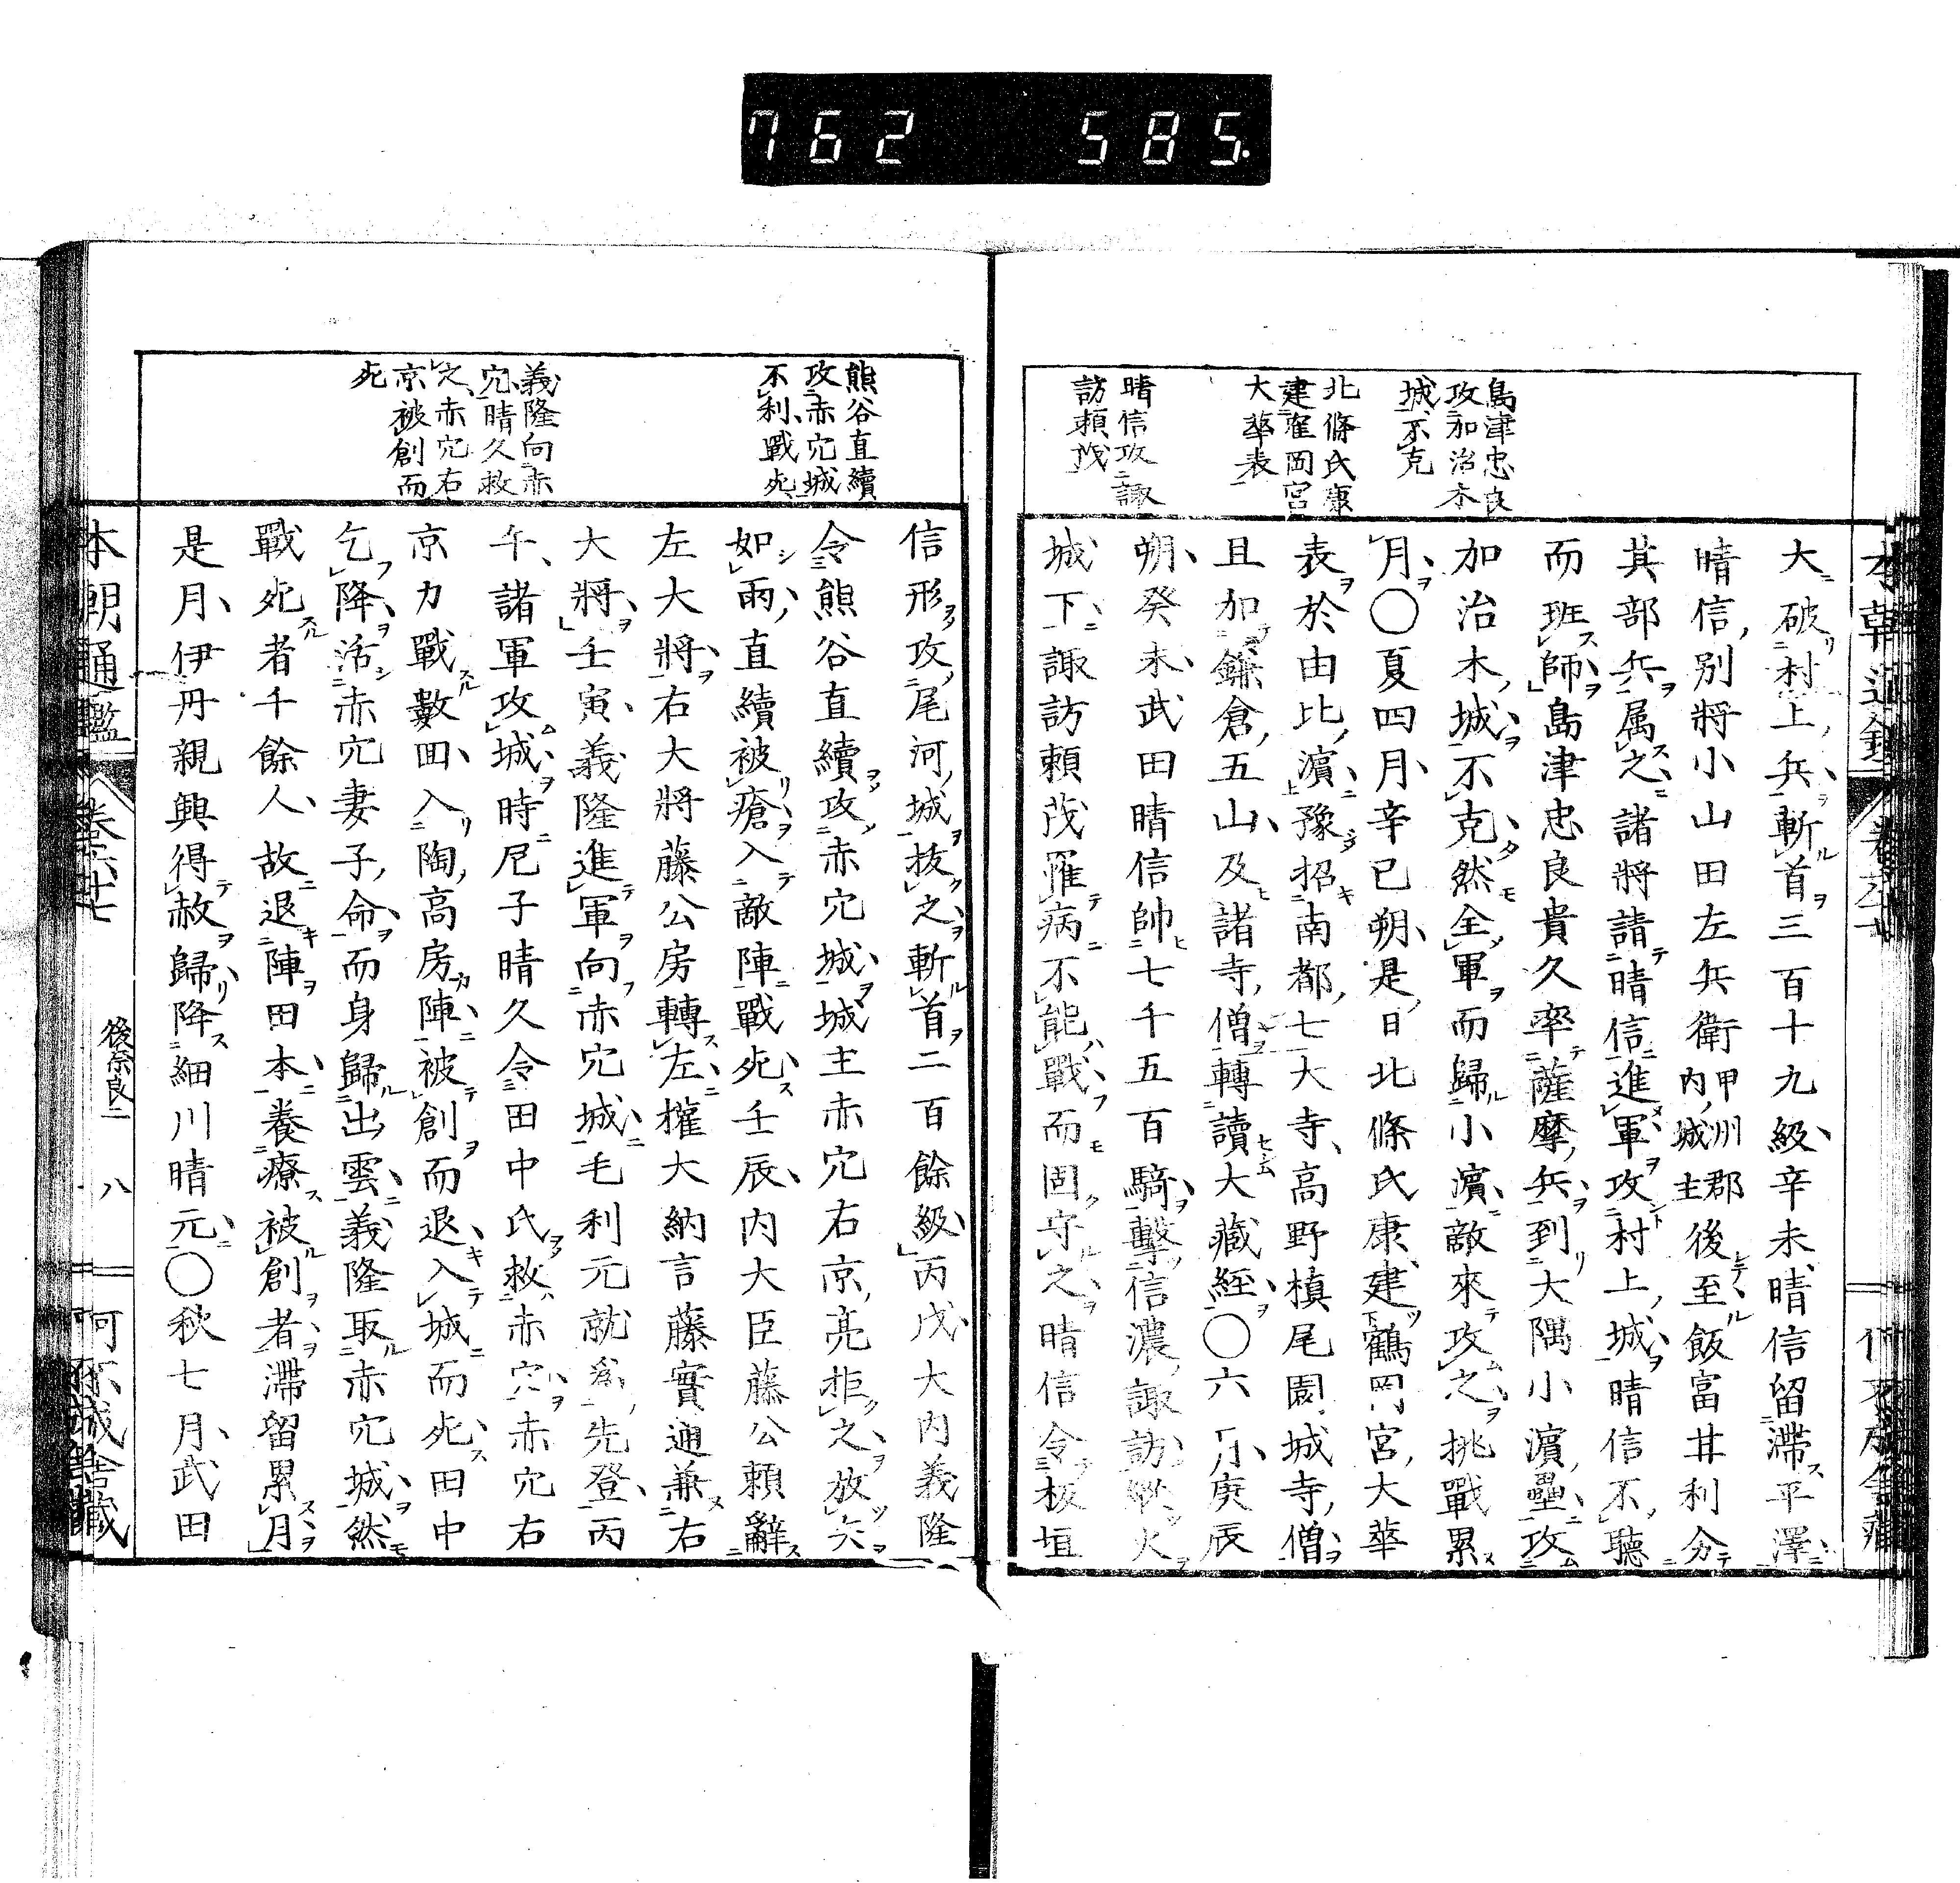 762 585.
島津忠良
攻加治木
城不克
北條氏康
建霍岡宮
大華表
晴信攻諏
訪頼茂
大破村上兵斬首三百十九級辛未晴信留滯平澤
晴信別將小山田左兵衛甲州郡内城主後至飯富井利分
其部兵属之諸將請晴信進軍攻村上城晴信不聽
而班師島津忠良貴久率薩摩兵到大隅小濵壘攻
加治木城不克然全軍而歸小濵敵來攻之挑戰累
月〇夏四月辛巳朔是日北條氏康建鶴岡宮大華
表於由比濵豫招南都七大寺高野槙尾園城寺僧
且加鎌倉五山及諸寺僧轉讀大藏經〇六月庚辰
朔癸未武田晴信帥七千五百騎擊信濃諏訪縱火
城下諏訪頼茂罹病不能戰而固守之晴信令板垣
熊谷直續
攻赤穴城
不利戰死
義隆向赤
穴晴久救
之赤穴右
京被創而
死
信形攻尾河城抜之斬首二百餘級丙戌大内義隆
令熊谷直續攻赤穴城城主赤穴右京亮拒之放矢
如雨直續被瘡入敵陣戰死壬辰内大臣藤公頼辭
左大將右大將藤公房轉左權大納言藤實通兼右
大將壬寅義隆進軍向赤穴城毛利元就爲先登丙
午諸軍攻城時尼子晴久令田中氏救赤穴赤穴右
京力戰數回入陶高房陣被創而退入城而死田中
乞降活赤穴妻子命而身歸出雲義隆取赤穴城然
戰死者千餘人故退陣田本養療被創者滯留累月
是月伊丹親興得赦歸降細川晴元〇秋七月武田
本朝通鑑 卷六十七 後奈良二 八